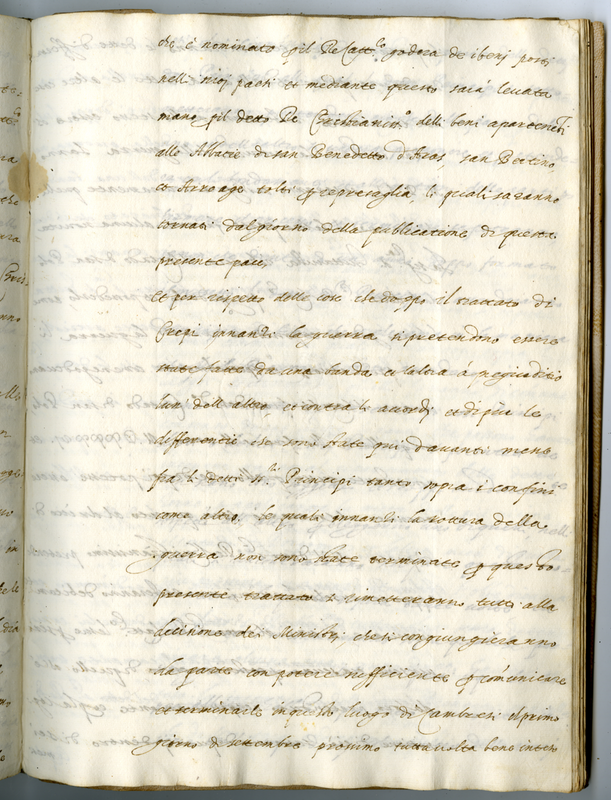 che è nominato p il Re Catt.co godera de i beni posti
nelli suoi paesi et mediante questo sarà levata
mano p il detto Re Chr.mo delli beni apartenenti
alle Abbatie di san Benedetto d'Aras, san Bertino
et tolti p represaglia, li quali saranno
tornati dal giorno della publicatione di questa
presente pace,
Et per rispetto delle cose che doppo il trattato di
Crepi innanzi la guerra si pretendono essere
state fatte da una banda et l'altra à pregiuditio
l'un dell'altro, et contra li accordi et di più le
differentie che sono state qui davanti mosse
fra li detti SS.ri Principi tanto sopra i confini
come altro, le quali innanzi la rottura della
guerra non sono state terminate p questo
presente trattato si rimetteranno tutti alla
decisione dei Ministri, che si congiungieranno
da parte con potere sufficiente p comunicare
et terminarle in quello luogo di Cambresi il primo
giorno di settembre prossimo tutta volta bene inteso